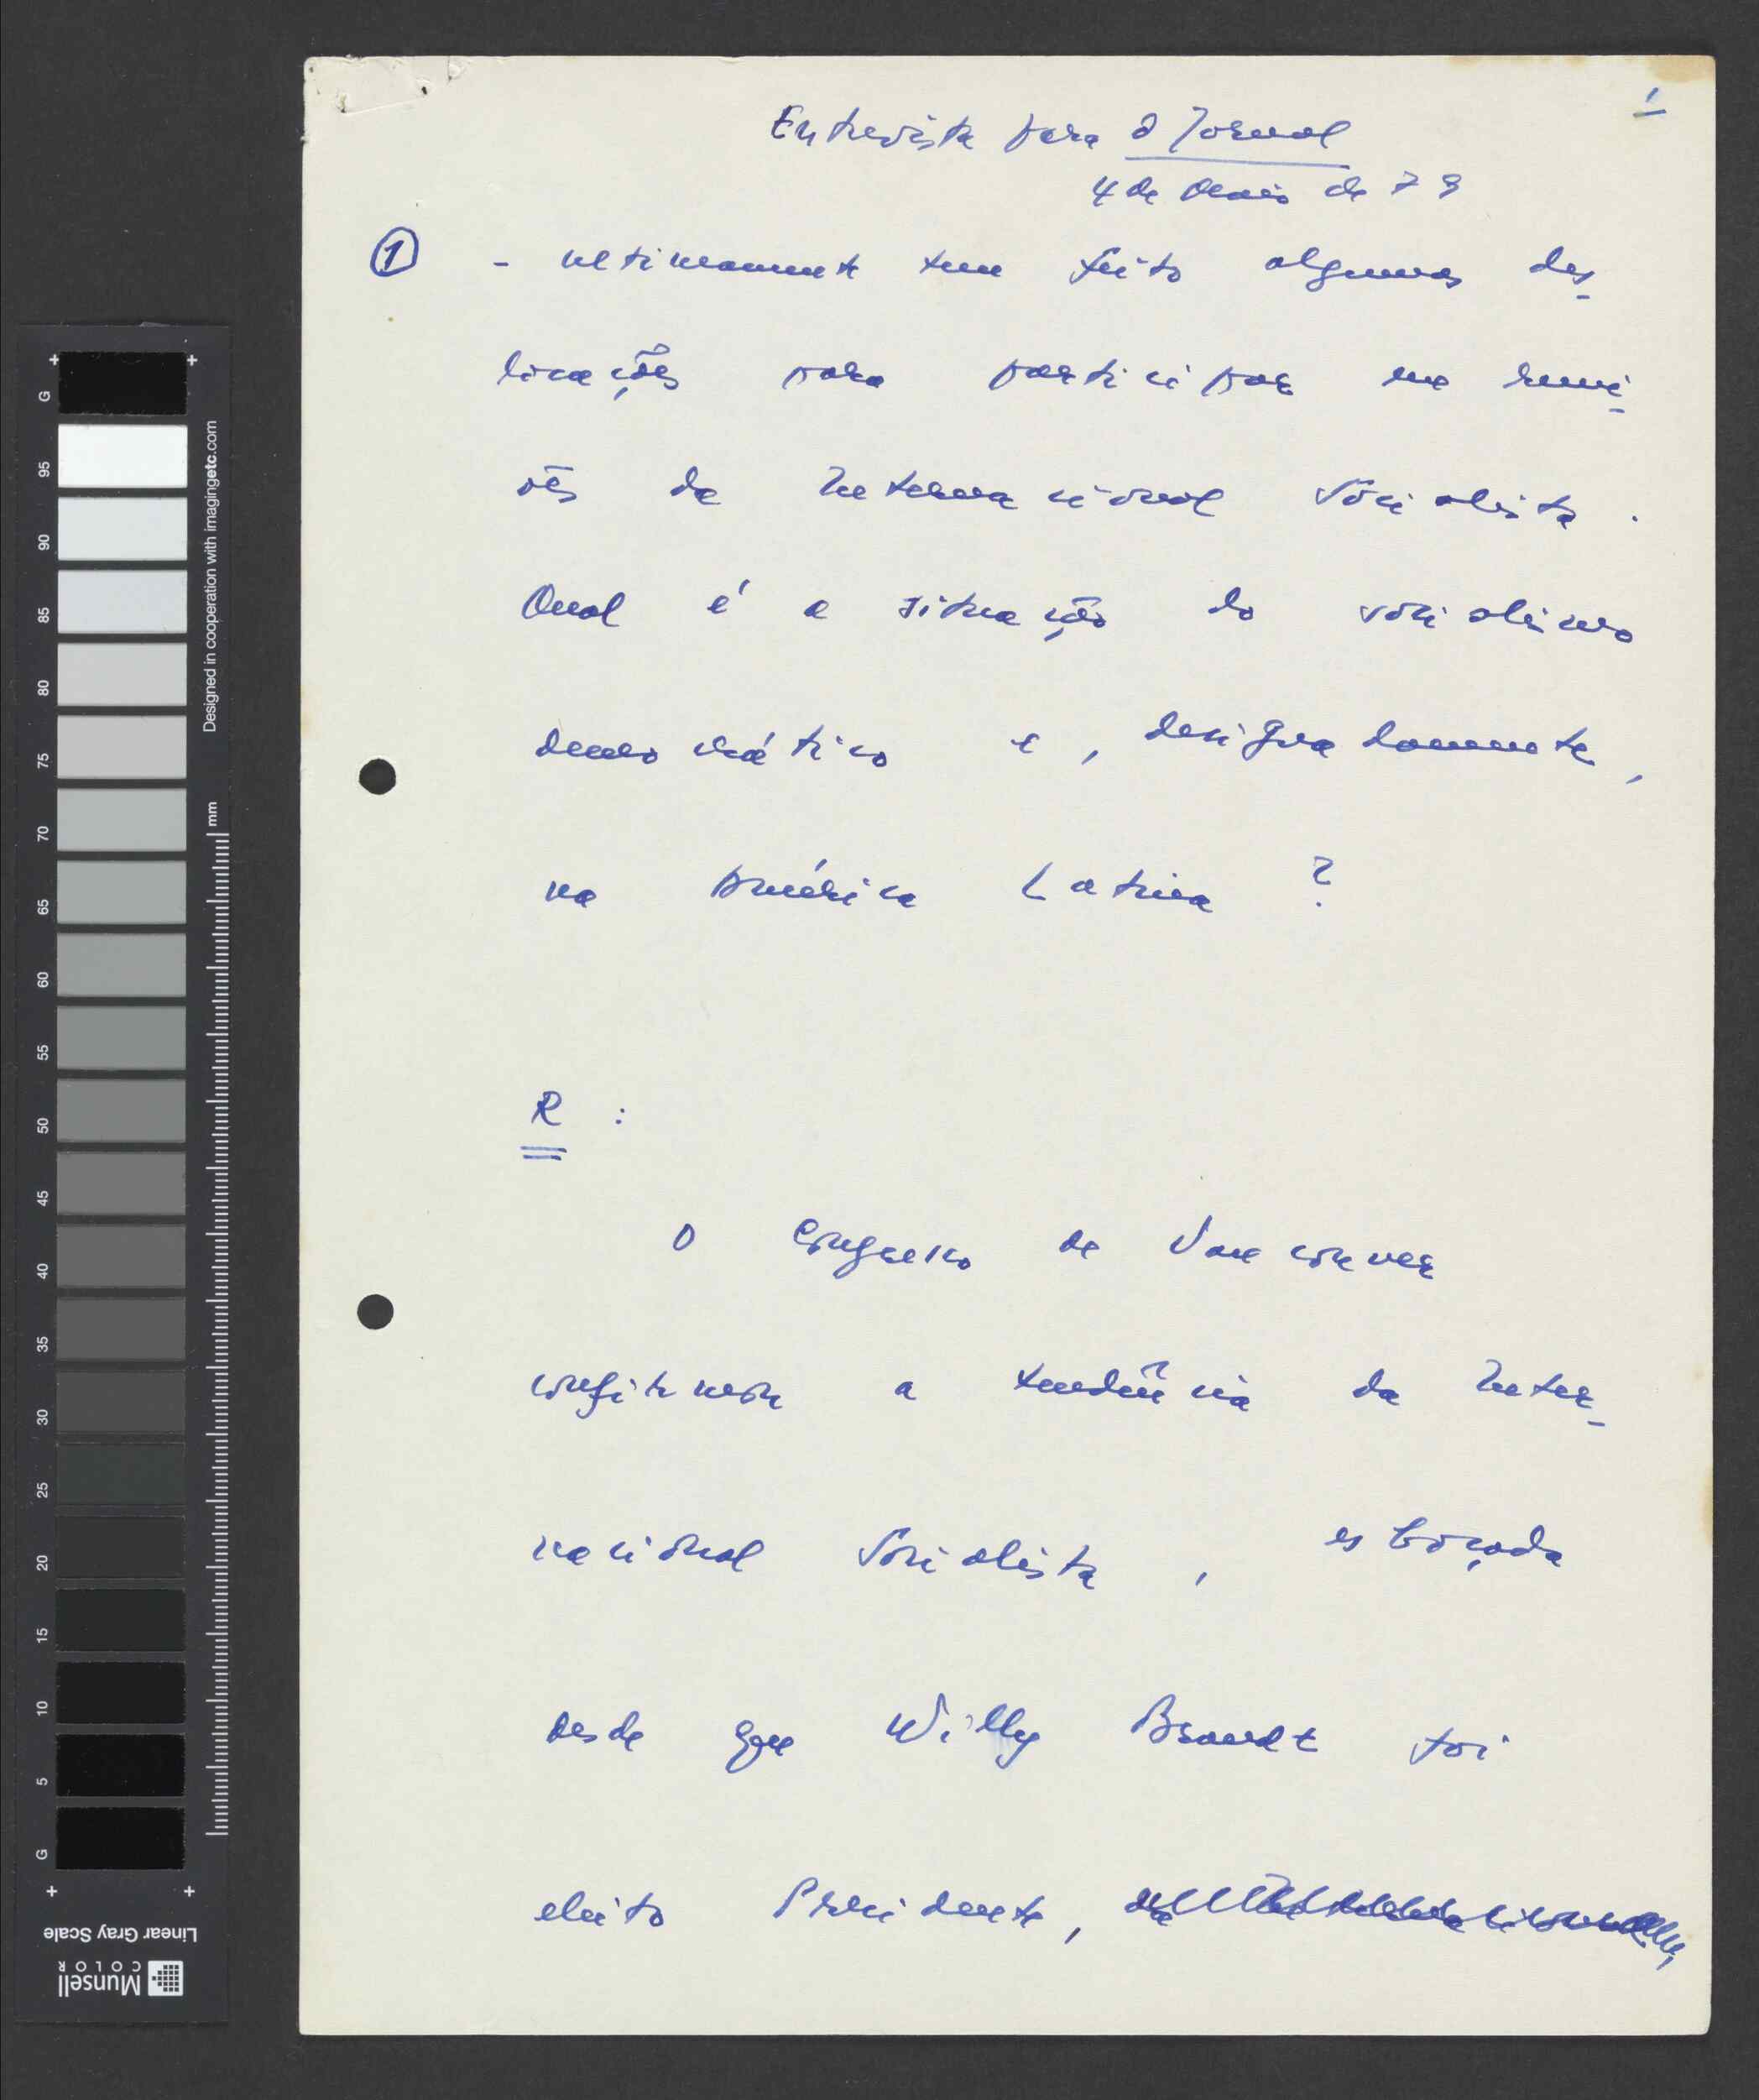 1
Entrevista para O Jornal
4 de Maio de 79
① - ultimamente tem feito algumas des-
locações para participar em reuni-
ões da Internacional Socialista.
Qual é a situação do socialismo
democrático e, designadamente,
na América Latina?
R :
O Congresso de Vancouver
confirmou a tendência da Inter-
nacional Socialista, esboçada
desde que Willy Brandt foi
eleito Presidente,
G
95
90
85
80
75
70
65
60
55
50
45
40
35
30
25
20
15
10
5
G
Designed in cooperation with imagingetc.com
mm
Linear Gray Scale
Munsell
COLOR